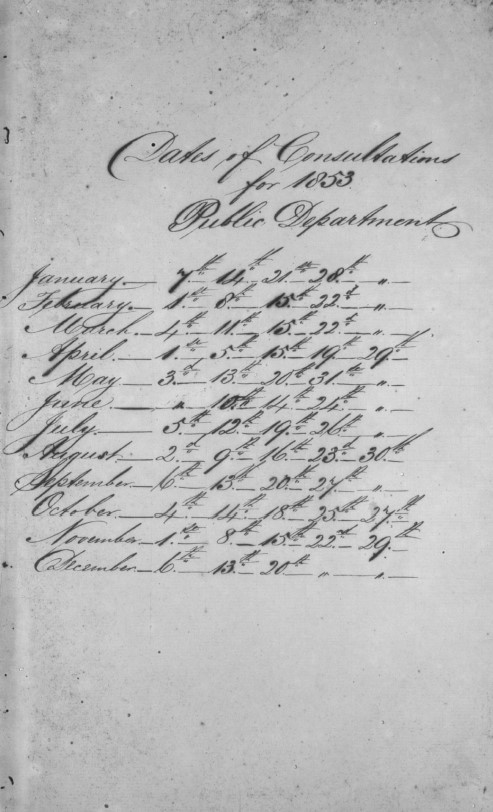 Dates of Consultations
for 1853.
Public Department
January — 7th — 14th — 21st — 28th — „ —
February — 1st — 8th — 15th — 22d — „ —
March — 4th — 11th — 15th — 22d — „ —
April — 1st — 5th — 15th — 19th — 29th
May — 3d — 13th — 20th — 31st — „ —
June — „ — 10th — 14th — 24th — „ —
July — 5th — 12th — 19th — 26th — „ —
August — 2d — 9th — 16th — 23d — 30th
September — 6th — 13th — 20th — 27th — „ —
October — 4th — 14th — 18th — 25th — 27th
November — 1st — 8th — 15th — 22d — 29th
December — 6th — 13th — 20th — „ — „ —